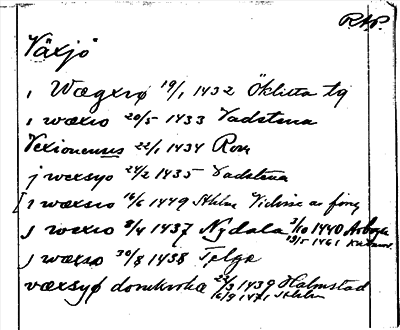 RAP.
Växjö
i Wægxiø 19/1 1432 Öklista tg
i wæxio 20/5 1433 Vadstena
Vexionensis 22/1 1434 Rom
j wexsyo 24/2 1435 Vadstena
[i wæxsio 16/6 1449 Sthlm Vidisse a fong
j wexio 8/4 1437 Nydala 3/10 1440 Arboga
19/5 1461 Kalmar.
j wæxsø 30/8 1438 Telge
væxsyø domkirkia 22/3 1439 Halmstad
16/9 1471 Sthlm